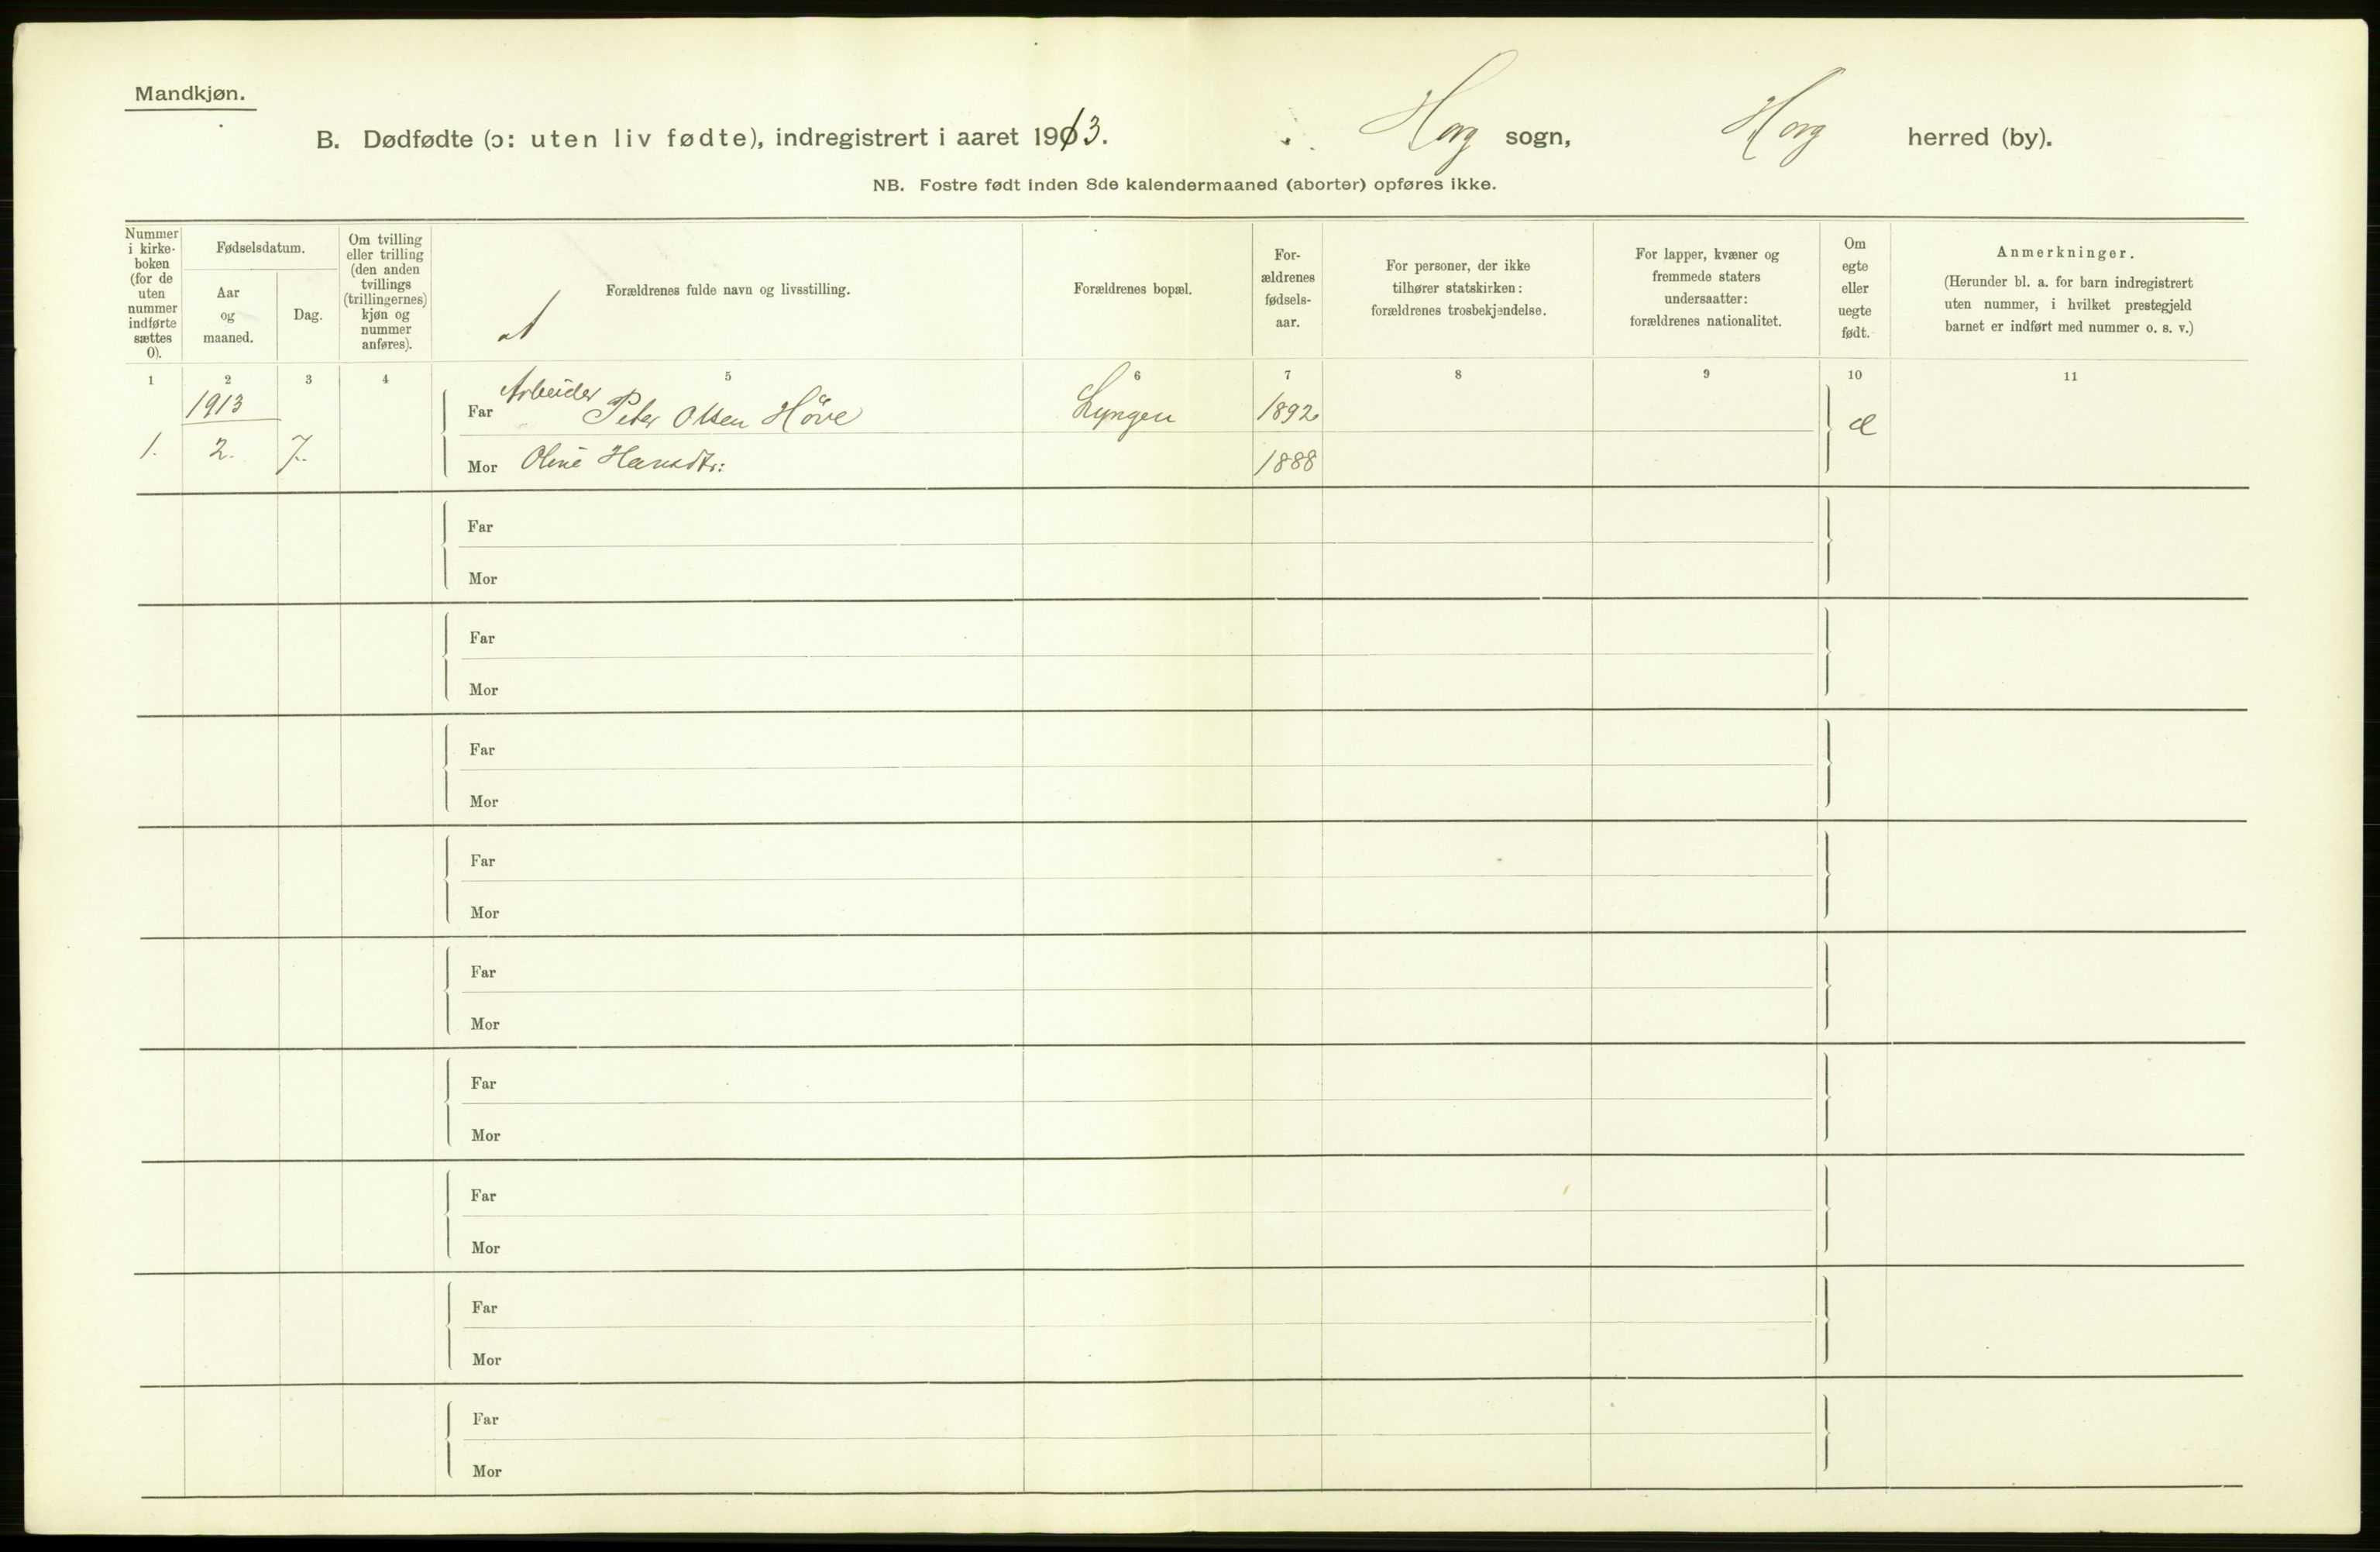 Mandkjøn.
B. Dødfødte (ɔ: uten liv fødte), indregistrert i aaret 1913. Horg sogn, Horg herred (by).
NB. Fostre født inden 8de kalendermaaned (aborter) opføres ikke.
Nummer i kirke-boken (for de uten nummer indførte sættes 0).
Fødselsdatum.
Aar og maaned.
Dag.
Om tvilling eller trilling (den anden tvillings (trillingernes) kjøn og nummer anføres).
Forældrenes fulde navn og livsstilling.
Forældrenes bopæl.
For-ældrenes fødsels-aar.
For personer, der ikke tilhører statskirken: forældrenes trosbekjendelse.
For lapper, kvæner og fremmede staters undersaatter: forældrenes nationalitet.
Om egte eller uegte født.
Anmerkninger.
(Herunder bl. a. for barn indregistrert uten nummer, i hvilket prestegjeld barnet er indført med nummer o. s. v.)
1 2 3 4 5 6 7 8 9 10 11
1913
Far Arbeider Peter Olsen Höve Lyngen 1892 æ
1. 2. 7. Mor Oline Hansdtr: 1888
Far
Mor
Far
Mor
Far
Mor
Far
Mor
Far
Mor
Far
Mor
Far
Mor
Far
Mor
Far
Mor